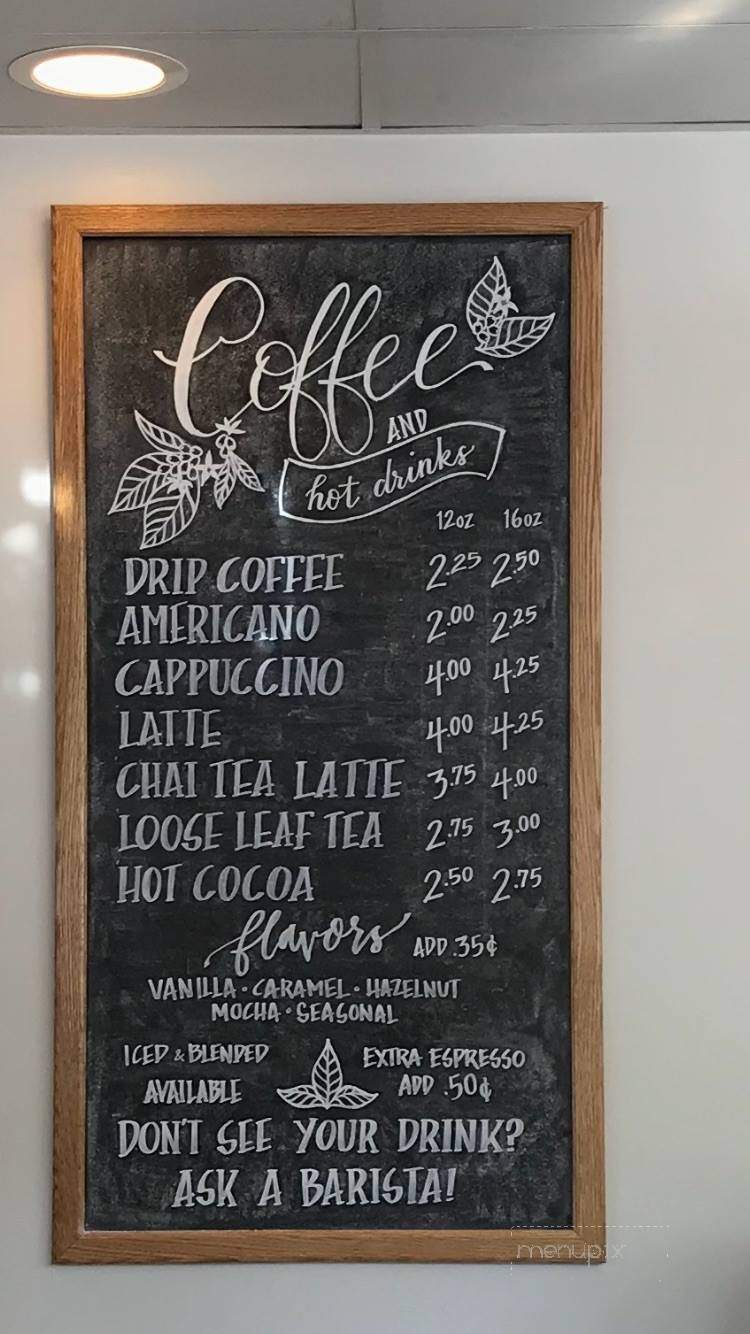 Coffee
AND
hot drinks
12oz 16oz
DRIP COFFEE 2.25 2.50
AMERICANO 2.00 2.25
CAPPUCCINO 4.00 4.25
LATTE 4.00 4.25
CHAI TEA LATTE 3.75 4.00
LOOSE LEAF TEA 2.75 3.00
HOT COCOA 2.50 2.75
flavors ADD .35¢
VANILLA • CARAMEL • HAZELNUT
MOCHA • SEASONAL
ICED & BLENDED
AVAILABLE
EXTRA ESPRESSO
ADD .50¢
DON'T SEE YOUR DRINK?
ASK A BARISTA!
menupix